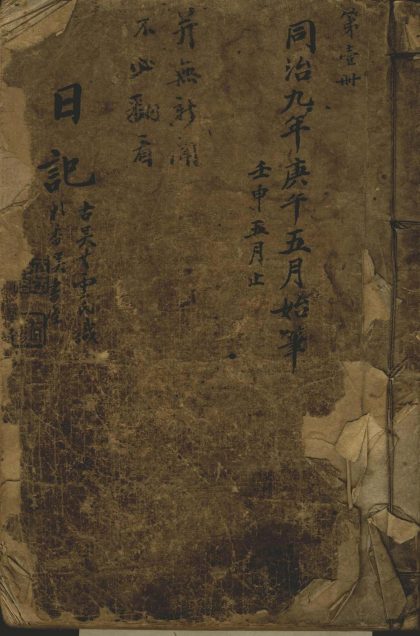 第壹冊
同治九年庚午五月始筆
壬申五月止
並無新聞
不必翻看
日記
古吳